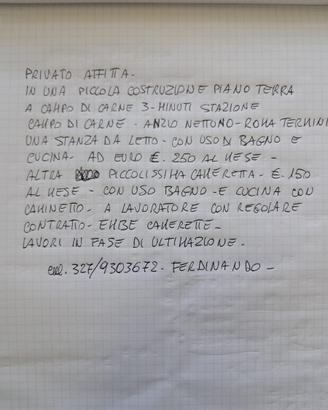 PRIVATO AFFITTA-
IN UNA PICCOLA COSTRUZIONE PIANO TERRA
A CAMPO DI CARNE 3-MINUTI STAZIONE
CAMPO DI CARNE - ANZIO NETTUNO-ROMA TERMINI
UNA STANZA DA LETTO-CON USO DI BAGNO E
CUCINA- AD EURO €. 250 AL MESE-
ALTRA PICCOLISSIMA CAMERETTA- €.150
AL MESE- CON USO BAGNO-E CUCINA CON
CAMINETTO- A LAVORATORE CON REGOLARE
CONTRATTO- EMBE CAMERETTE-
LAVORI IN FASE DI ULTIMAZIONE-
cell. 327/9303672-FERDINANDO-